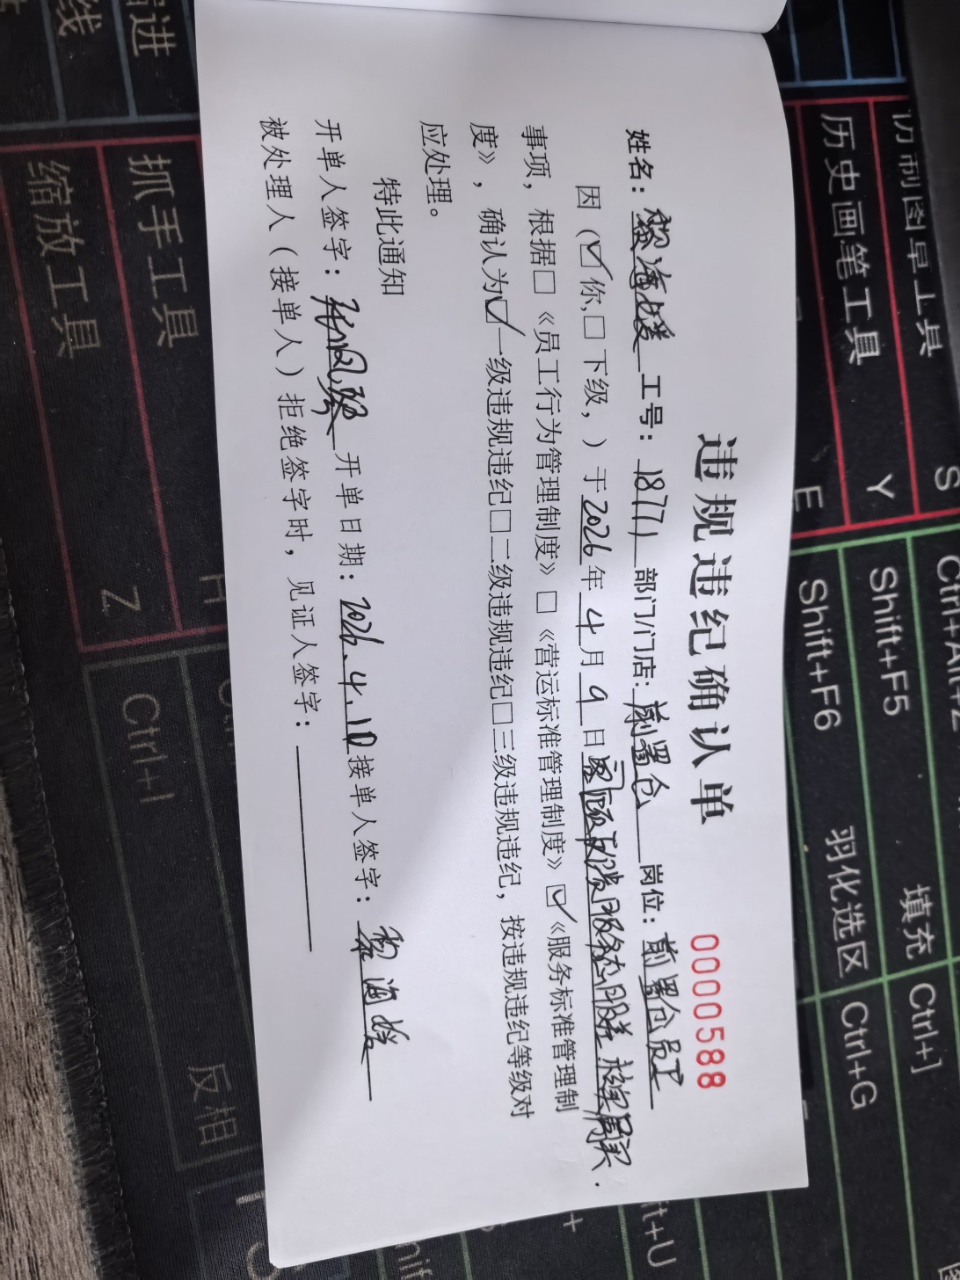 违规违纪确认单
0000588
姓名：黎海媛 工号：18771 部门/门店：前置仓 岗位：前置仓员工
因（☑你,☐下级，）于2026年4月9日因顾客反馈服务态度差 核实属实.
事项，根据☐《员工行为管理制度》☐《营运标准管理制度》☑《服务标准管理制
度》，确认为☑一级违规违纪☐二级违规违纪☐三级违规违纪，按违规违纪等级对
应处理。
特此通知
开单人签字： 开单日期：2026.4.10 接单人签字：黎海媛
被处理人（接单人）拒绝签字时，见证人签字：
历史画笔工具 Y
抓手工具 H
缩放工具 Z
E
S
Shift+F5
Shift+F6
填充
羽化选区
Ctrl+]
Ctrl+G
Ctrl+I
反相